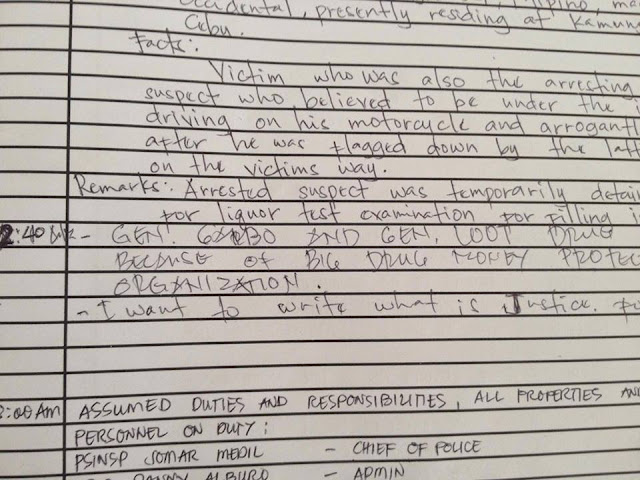 Occidental, presently residing at Kamun
Cebu.
Facts:.
Victim who was also the arresting
suspect who believed to be under the
driving on his motorcycle and arrogantl
after he was flagged down by the latt
on the victims way.
Remarks:. Arrested suspect was temporarily detai
for liquor test examination for filling i
2:40 - GEN. GARBO AND GEN. LOOT DRUG
BECAUSE OF BIG DRUG MONEY PROTEC
ORGANIZATION.
- I want to write what is Justice.
:00 AM ASSUMED DUTIES AND RESPONSIBILITIES, ALL PROPERTIES AND
PERSONNEL ON DUTY:
PSINSP JOMAR MEDIL - CHIEF OF POLICE
ALBURO - ADMIN